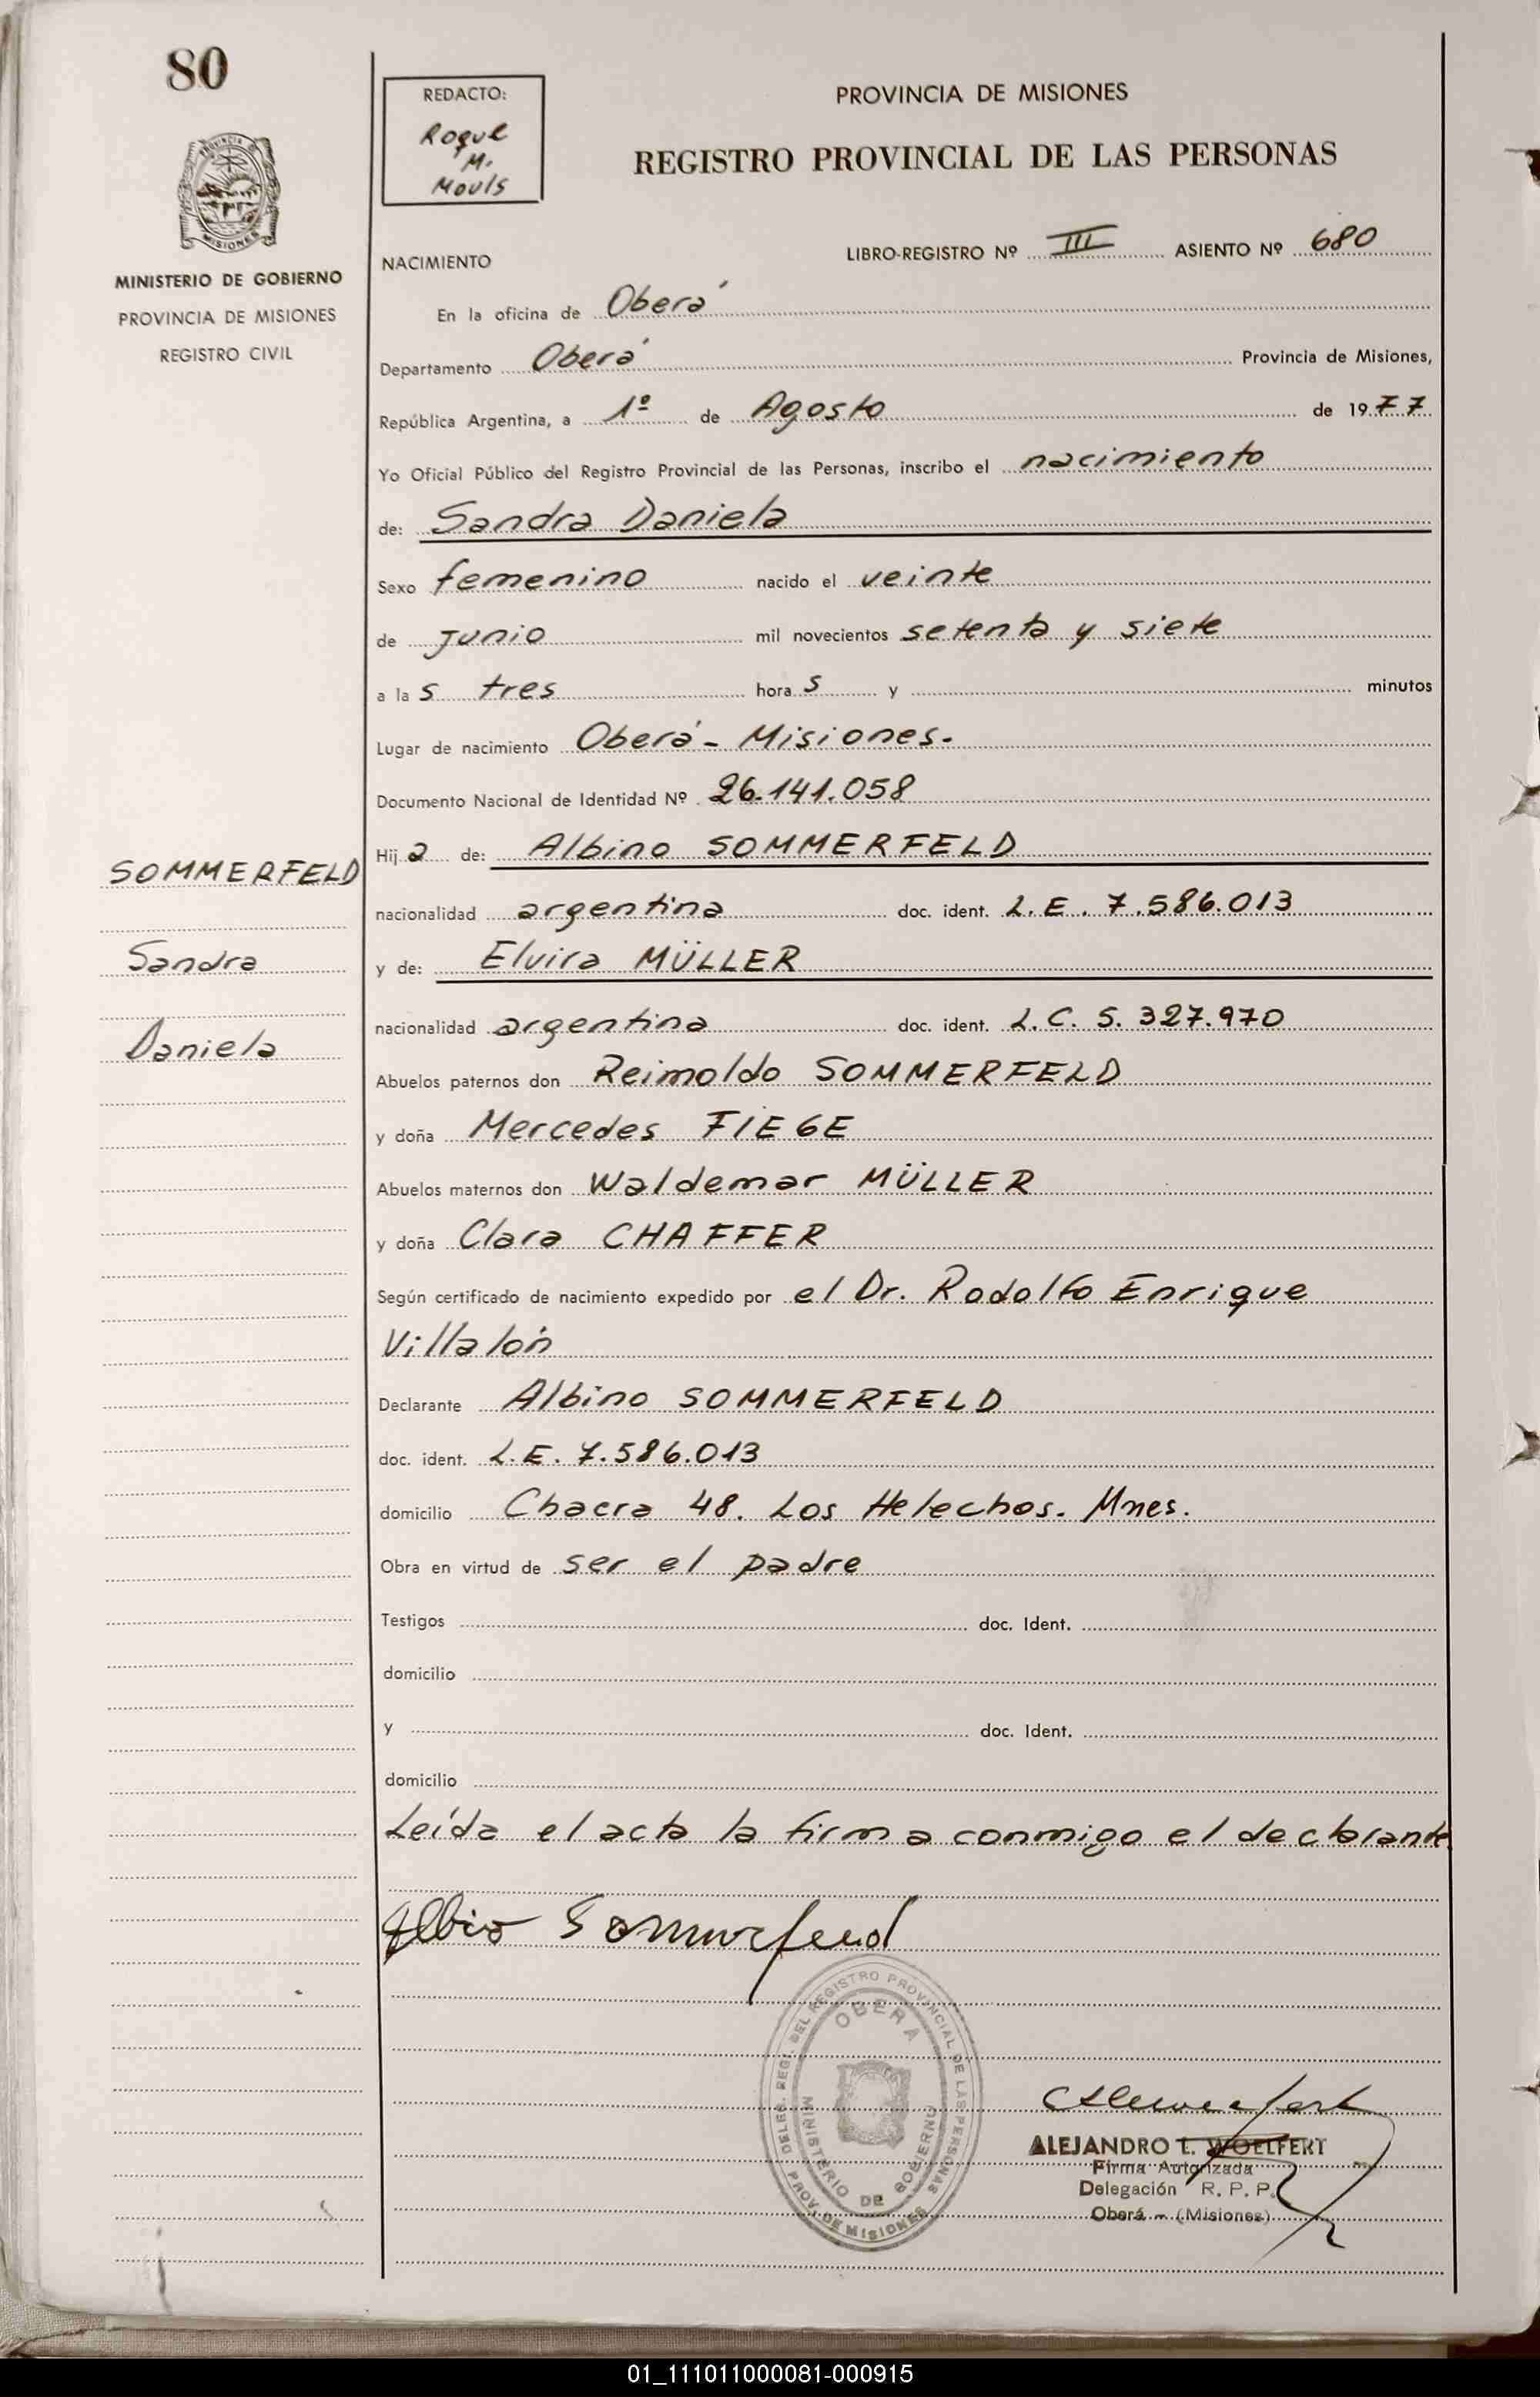 80
REDACTO:
Roque
M.
Mouls
PROVINCIA DE MISIONES
REGISTRO PROVINCIAL DE LAS PERSONAS
PROVINCIA DE
MISIONES
MINISTERIO DE GOBIERNO
PROVINCIA DE MISIONES
REGISTRO CIVIL
NACIMIENTO
LIBRO-REGISTRO Nº III ASIENTO Nº 680
En la oficina de Oberá
Departamento Oberá Provincia de Misiones,
República Argentina, a 1º de Agosto de 1977
Yo Oficial Público del Registro Provincial de las Personas, inscribo el nacimiento
de: Sandra Daniela
Sexo femenino nacido el veinte
de junio mil novecientos setenta y siete
a las tres horas y minutos
Lugar de nacimiento Oberá - Misiones.
Documento Nacional de Identidad Nº 26.141.058
Hija de: Albino SOMMERFELD
SOMMERFELD
nacionalidad argentina doc. ident. L.E. 7.586.013
Sandra
y de: Elvira MÜLLER
nacionalidad argentina doc. ident. L.C. 5.327.970
Daniela
Abuelos paternos don Reimoldo SOMMERFELD
y doña Mercedes FIEGE
Abuelos maternos don Waldemar MÜLLER
y doña Clara CHAFFER
Según certificado de nacimiento expedido por el Dr. Rodolfo Enrique
Villalón
Declarante Albino SOMMERFELD
doc. ident. L.E. 7.586.013
domicilio Chacra 48. Los Helechos. Mnes.
Obra en virtud de ser el padre
Testigos doc. Ident.
domicilio
y doc. Ident.
domicilio
Leída el acta la firma conmigo el declarante.
DELEG. REGI. DEL REGISTRO PROVINCIAL DE LAS PERSONAS
OBERA
MINISTERIO DE GOBIERNO
PROV. DE MISIONES
ALEJANDRO L. WOELFERT
Firma Autorizada
Delegación R. P. P.
Oberá - (Misiones)
01_111011000081-000915